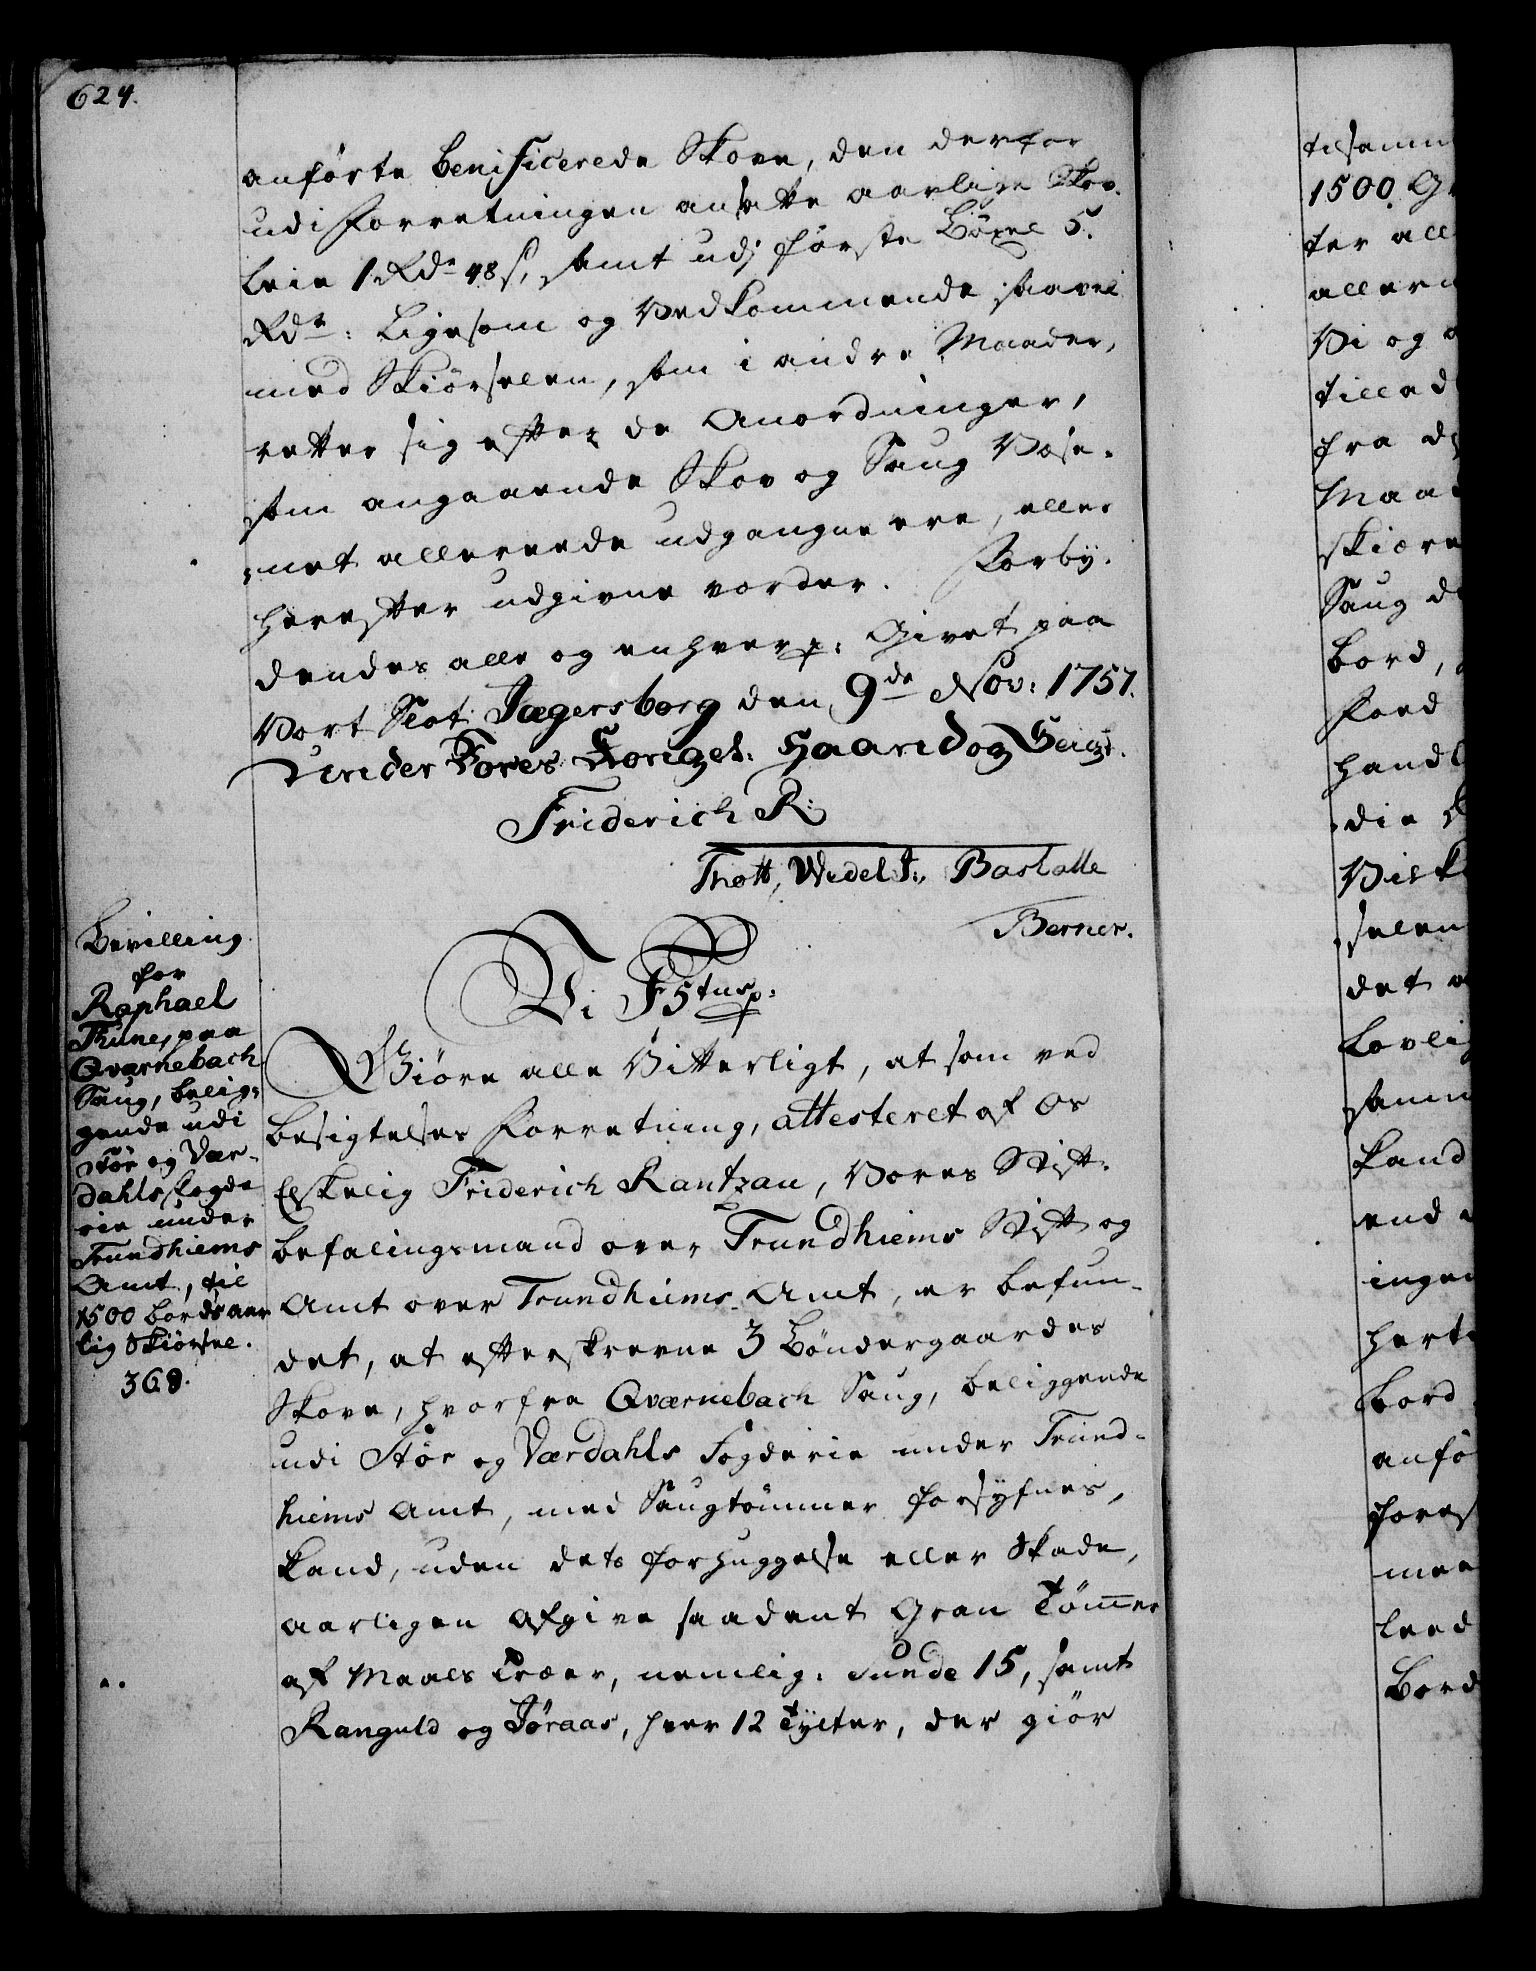 624.
anførte benificerede Skove, den derfor
udi Forretningen ansatte aarlige Skov-
leie 1 Rdr 48 s, samt udj første Böxel 5.
Rdr: Ligesom og Vedkommende saavel
med Skiørselen, som i andre Maader,
retter sig efter de Anordninger,
som angaaende Skov og Saug Væse-
net allereede udgangne ere, eller
herefter udgivne vorder. Forby-
dendes alle og enhver p: Givet paa
Vort Slot Jægersborg den 9de Nov: 1757.
Under Vores Kongel: Haand og Seigl.
Friderich R:
Thott, Wedel F:, Bartalle
Berner.
Bevilling
for
Raphael
Thune, paa
Qvarnebach
Saug, belig-
gende udi
Stör og Vær-
dahls fogde
rie under
Trundhiems
Amt, til
1500 bords aar
lig Skiørsel.
368.
Vi F5tus p:
Giøre alle Vitterligt, at som ved
besigtelses Forretning, attesteret af Os
Elskelig Friderich Rantzau, Vores Stift-
befalingsmand over Trundhiems Stift og
Amt over Trundhiems Amt, er befun-
det, at efterskrevne 3 Bøndergaardes
Skove, hvorfra Qværnebach Saug, beliggende
udi Stör og Værdahls Fogderie under Trund-
hiems Amt, med Saugtömmer forsyfnes,
kand, uden dets forhuggelse eller Skade,
aarligen afgive saadent Gran Tömer
af Maals Træer, nemlig: Sunde 15, samt
Ranguld og Jöraas, hver 12 Tylter, der giör
tilsamm
1500 G
ter all
allern
Vi og
tillad
fra d
Maa
skiære
Saug d
bord,
handl
die
selen
det
Lovli
samm
kand
end
inge
hert
bord
anfö
fores
mee
leed
Bord